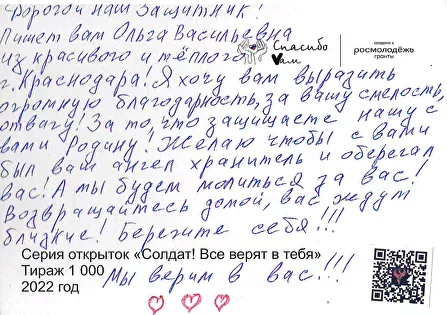 Дорогой наш Защитник!
Пишет вам Ольга Васильевна
из красивого и тёплого
г. Краснодара! Я хочу вам выразить
огромную благодарность, за вашу смелость,
отвагу! За то, что защищаете нашу с
вами Родину! Желаю чтобы с вами
был ваш ангел хранитель и оберегал
вас! А мы будем молиться за вас!
Возвращайтесь домой, вас ждут
близкие! Берегите себя!!!
Спасибо
Вам
создано с
росмолодёжь
гранты
Серия открыток «Солдат! Все верят в тебя»
Тираж 1 000
2022 год
Мы верим в вас!!!